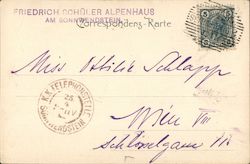 FRIEDRICH SCHÜLER ALPENHAUS
AM SONNWENDSTEIN
Correspondenz-Karte
Miss Ottilie Schlapp
K.K. TELEPHONSTELLE
25
Wien VIII
SONNWENDSTEIN
Schlösselgasse